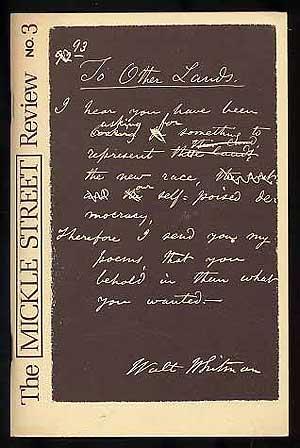 The MICKLE STREET Review NO. 3
93
To Other Lands.
I hear you have been
asking for
something to
represent
the new race,
our self-poised de-
mocracy,
Therefore I send you my
poems that you
behold in them what
you wanted.—
Walt Whitman